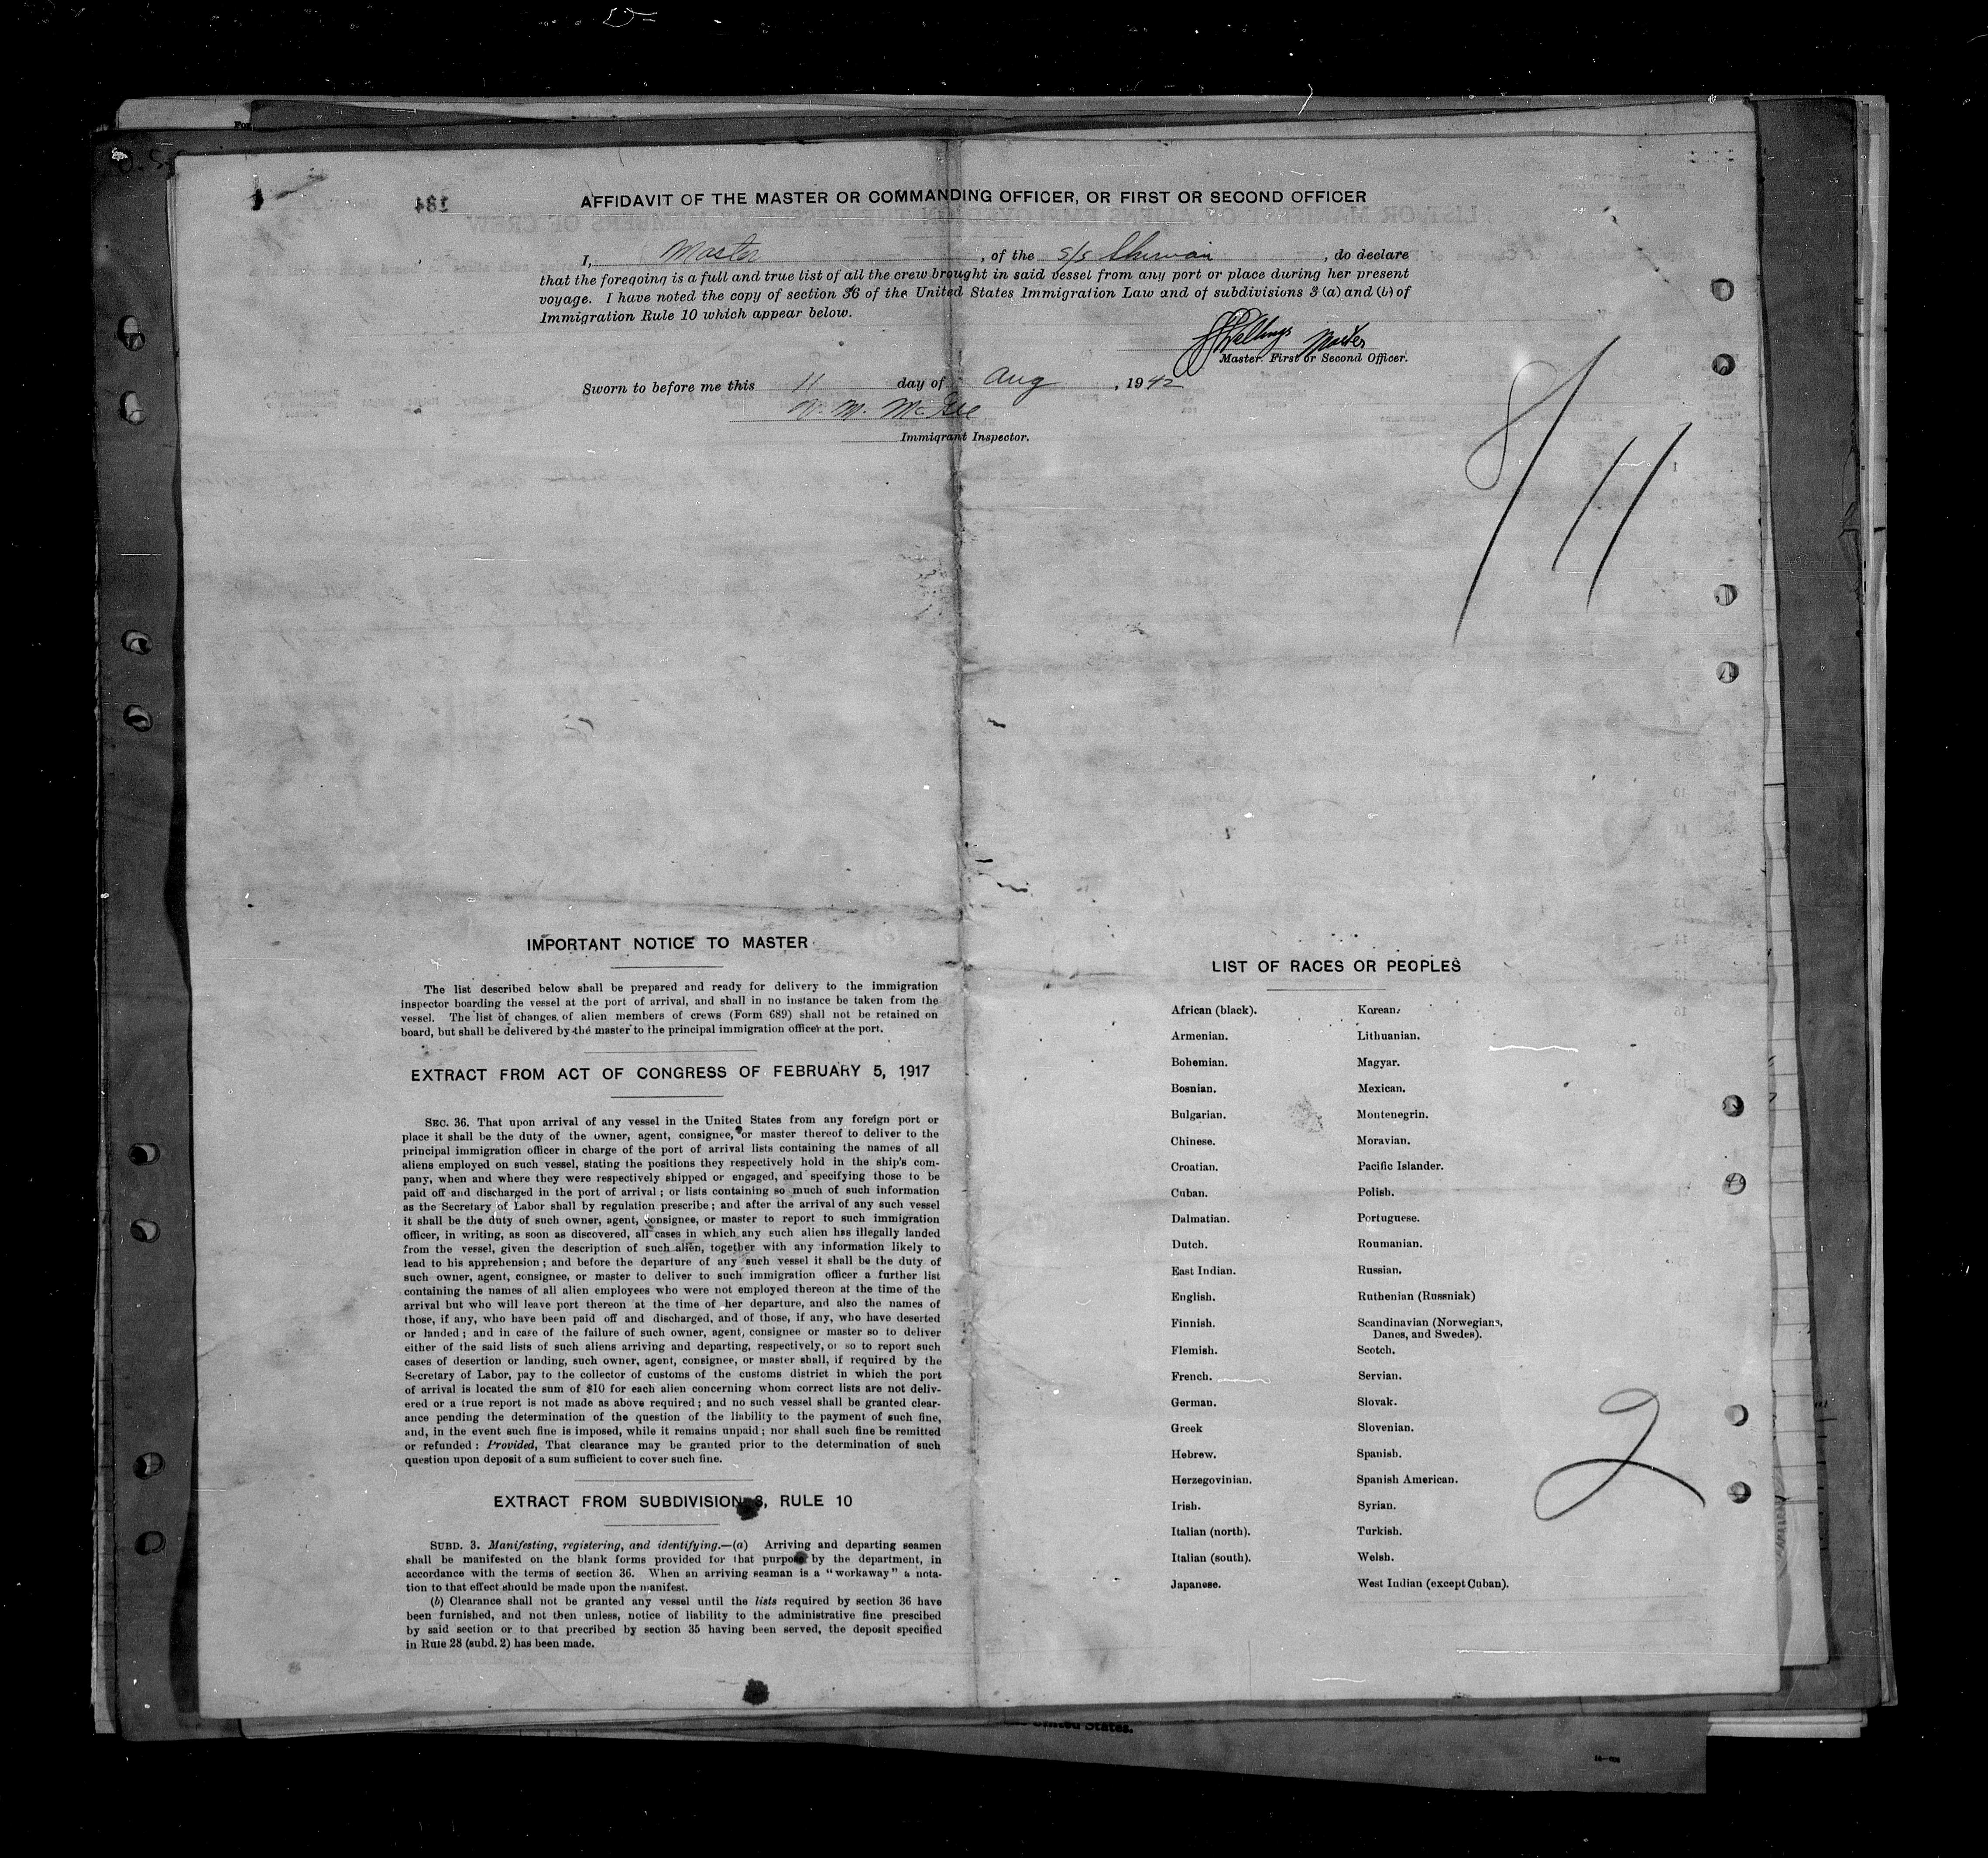 AFFIDAVIT OF THE MASTER OR COMMANDING OFFICER, OR FIRST OR SECOND OFFICER
I, Master, of the s/s, do declare
that the foregoing is a full and true list of all the crew brought in said vessel from any port or place during her present
voyage. I have noted the copy of section 36 of the United States Immigration Law and of subdivisions 3 (a) and (b) of
Immigration Rule 10 which appear below.
Master
Master. First or Second Officer.
Sworn to before me this 11 day of Aug, 1942
Immigrant Inspector.
8/11
IMPORTANT NOTICE TO MASTER
The list described below shall be prepared and ready for delivery to the immigration
inspector boarding the vessel at the port of arrival, and shall in no instance be taken from the
vessel. The list of changes of alien members of crews (Form 689) shall not be retained on
board, but shall be delivered by the master to the principal immigration officer at the port.
EXTRACT FROM ACT OF CONGRESS OF FEBRUARY 5, 1917
SEC. 36. That upon arrival of any vessel in the United States from any foreign port or
place it shall be the duty of the owner, agent, consignee, or master thereof to deliver to the
principal immigration officer in charge of the port of arrival lists containing the names of all
aliens employed on such vessel, stating the positions they respectively hold in the ship's com-
pany, when and where they were respectively shipped or engaged, and specifying those to be
paid off and discharged in the port of arrival; or lists containing so much of such information
as the Secretary of Labor shall by regulation prescribe; and after the arrival of any such vessel
it shall be the duty of such owner, agent, consignee, or master to report to such immigration
officer, in writing, as soon as discovered, all cases in which any such alien has illegally landed
from the vessel, given the description of such alien, together with any information likely to
lead to his apprehension; and before the departure of any such vessel it shall be the duty of
such owner, agent, consignee, or master to deliver to such immigration officer a further list
containing the names of all alien employees who were not employed thereon at the time of the
arrival but who will leave port thereon at the time of her departure, and also the names of
those, if any, who have been paid off and discharged, and of those, if any, who have deserted
or landed; and in case of the failure of such owner, agent, consignee or master so to deliver
either of the said lists of such aliens arriving and departing, respectively, or so to report such
cases of desertion or landing, such owner, agent, consignee, or master shall, if required by the
Secretary of Labor, pay to the collector of customs of the customs district in which the port
of arrival is located the sum of $10 for each alien concerning whom correct lists are not deliv-
ered or a true report is not made as above required; and no such vessel shall be granted clear-
ance pending the determination of the question of the liability to the payment of such fine,
and, in the event such fine is imposed, while it remains unpaid; nor shall such fine be remitted
or refunded: Provided, That clearance may be granted prior to the determination of such
question upon deposit of a sum sufficient to cover such fine.
EXTRACT FROM SUBDIVISION 3, RULE 10
SUBD. 3. Manifesting, registering, and identifying.—(a) Arriving and departing seamen
shall be manifested on the blank forms provided for that purpose by the department, in
accordance with the terms of section 36. When an arriving seaman is a "workaway" a nota-
tion to that effect should be made upon the manifest.
(b) Clearance shall not be granted any vessel until the lists required by section 36 have
been furnished, and not then unless, notice of liability to the administrative fine prescibed
by said section or to that precribed by section 35 having been served, the deposit specified
in Rule 28 (subd. 2) has been made.
LIST OF RACES OR PEOPLES
African (black).
Armenian.
Bohemian.
Bosnian.
Bulgarian.
Chinese.
Croatian.
Cuban.
Dalmatian.
Dutch.
East Indian.
English.
Finnish.
Flemish.
French.
German.
Greek
Hebrew.
Herzegovinian.
Irish.
Italian (north).
Italian (south).
Japanese.
Korean.
Lithuanian.
Magyar.
Mexican.
Montenegrin.
Moravian.
Pacific Islander.
Polish.
Portuguese.
Roumanian.
Russian.
Ruthenian (Russniak)
Scandinavian (Norwegians,
Danes, and Swedes).
Scotch.
Servian.
Slovak.
Slovenian.
Spanish.
Spanish American.
Syrian.
Turkish.
Welsh.
West Indian (except Cuban).
2
United States.